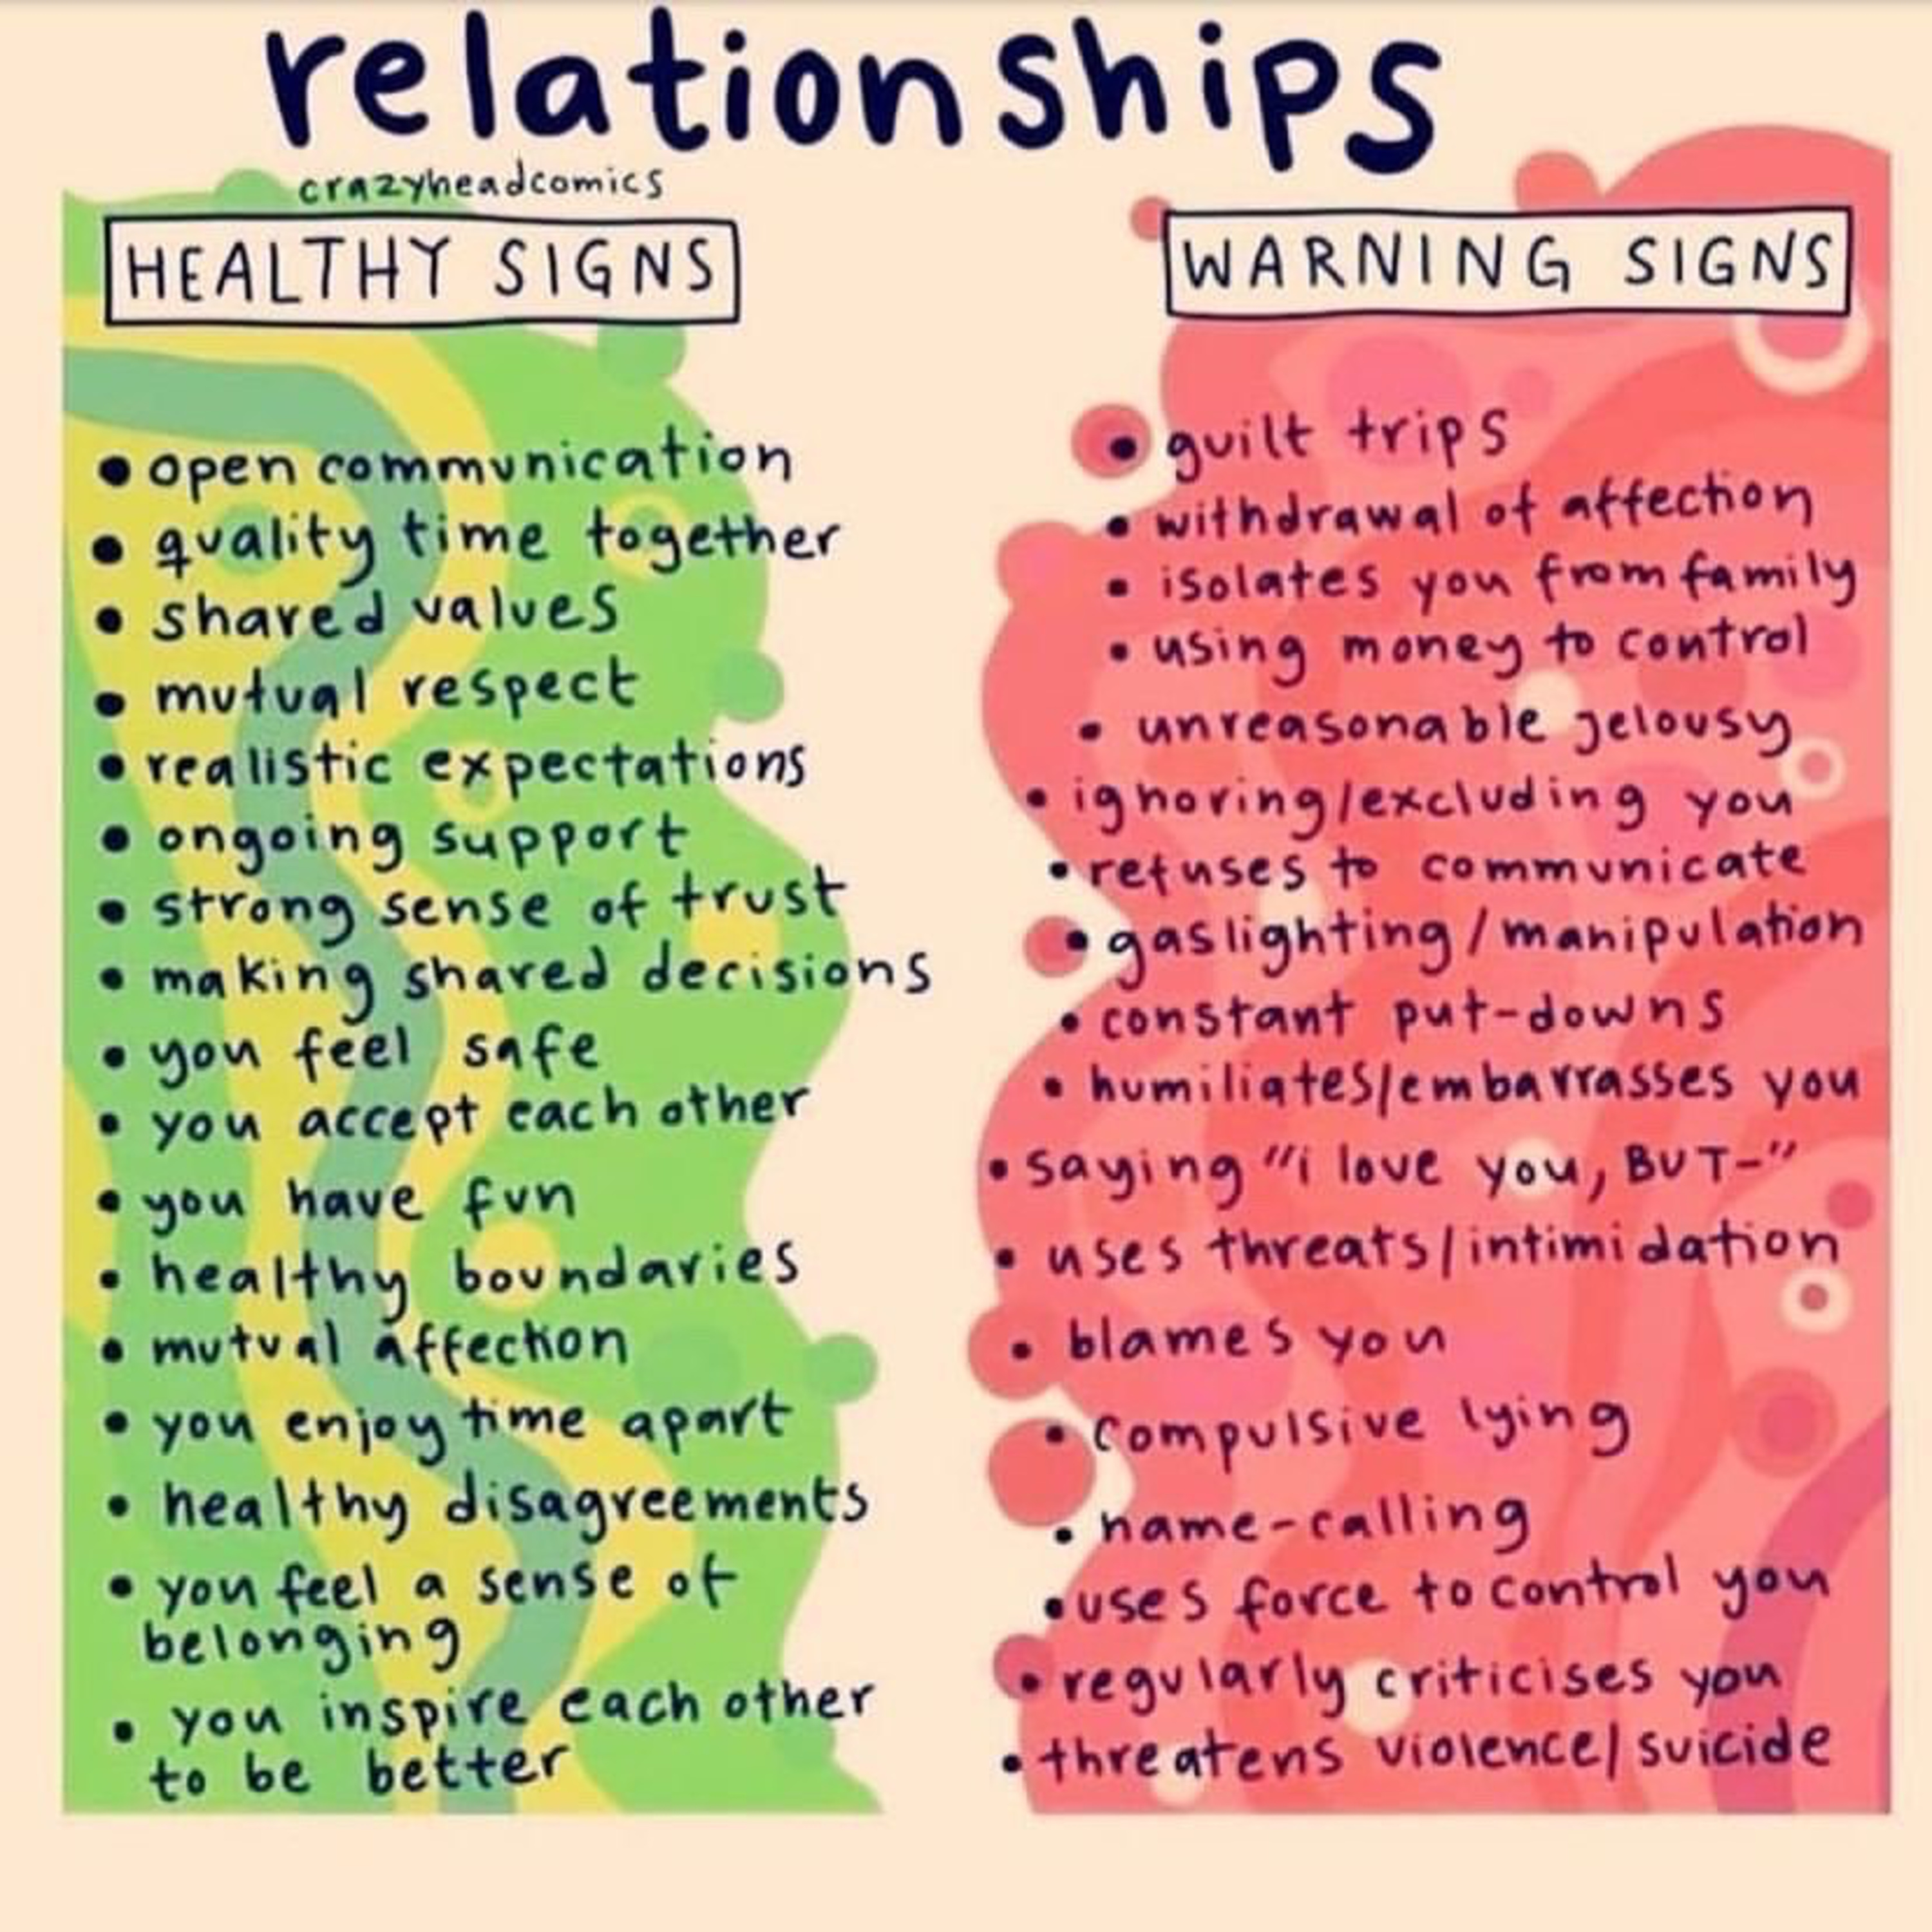 relationships
crazyheadcomics
HEALTHY SIGNS
• open communication
• quality time together
• shared values
• mutual respect
• realistic expectations
• ongoing support
• strong sense of trust
• making shared decisions
• you feel safe
• you accept each other
• you have fun
• healthy boundaries
• mutual affection
• you enjoy time apart
• healthy disagreements
• you feel a sense of
belonging
• you inspire each other
to be better
WARNING SIGNS
• guilt trips
• withdrawal of affection
• isolates you from family
• using money to control
• unreasonable jelousy
• ignoring/excluding you
• refuses to communicate
• gaslighting/manipulation
• constant put-downs
• humiliates/embarrasses you
• saying "i love you, BUT-"
• uses threats/intimidation
• blames you
• compulsive lying
• name-calling
• uses force to control you
• regularly criticises you
• threatens violence/suicide